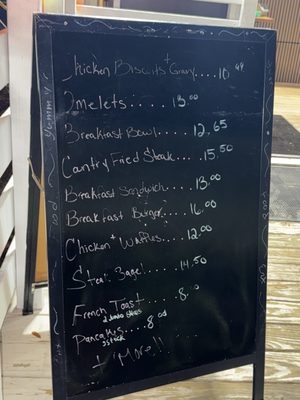 Chicken Biscuits + Gravy....10.49
Omelets.....13.00
Breakfast Bowl....12.65
Country Fried Steak....15.50
Breakfast Sandwich....13.00
Breakfast Burger....16.00
Chicken + Waffles....12.00
Steak Bagel....14.50
French Toast....8.00
Pancakes....8.00
3 stack
+ More!!